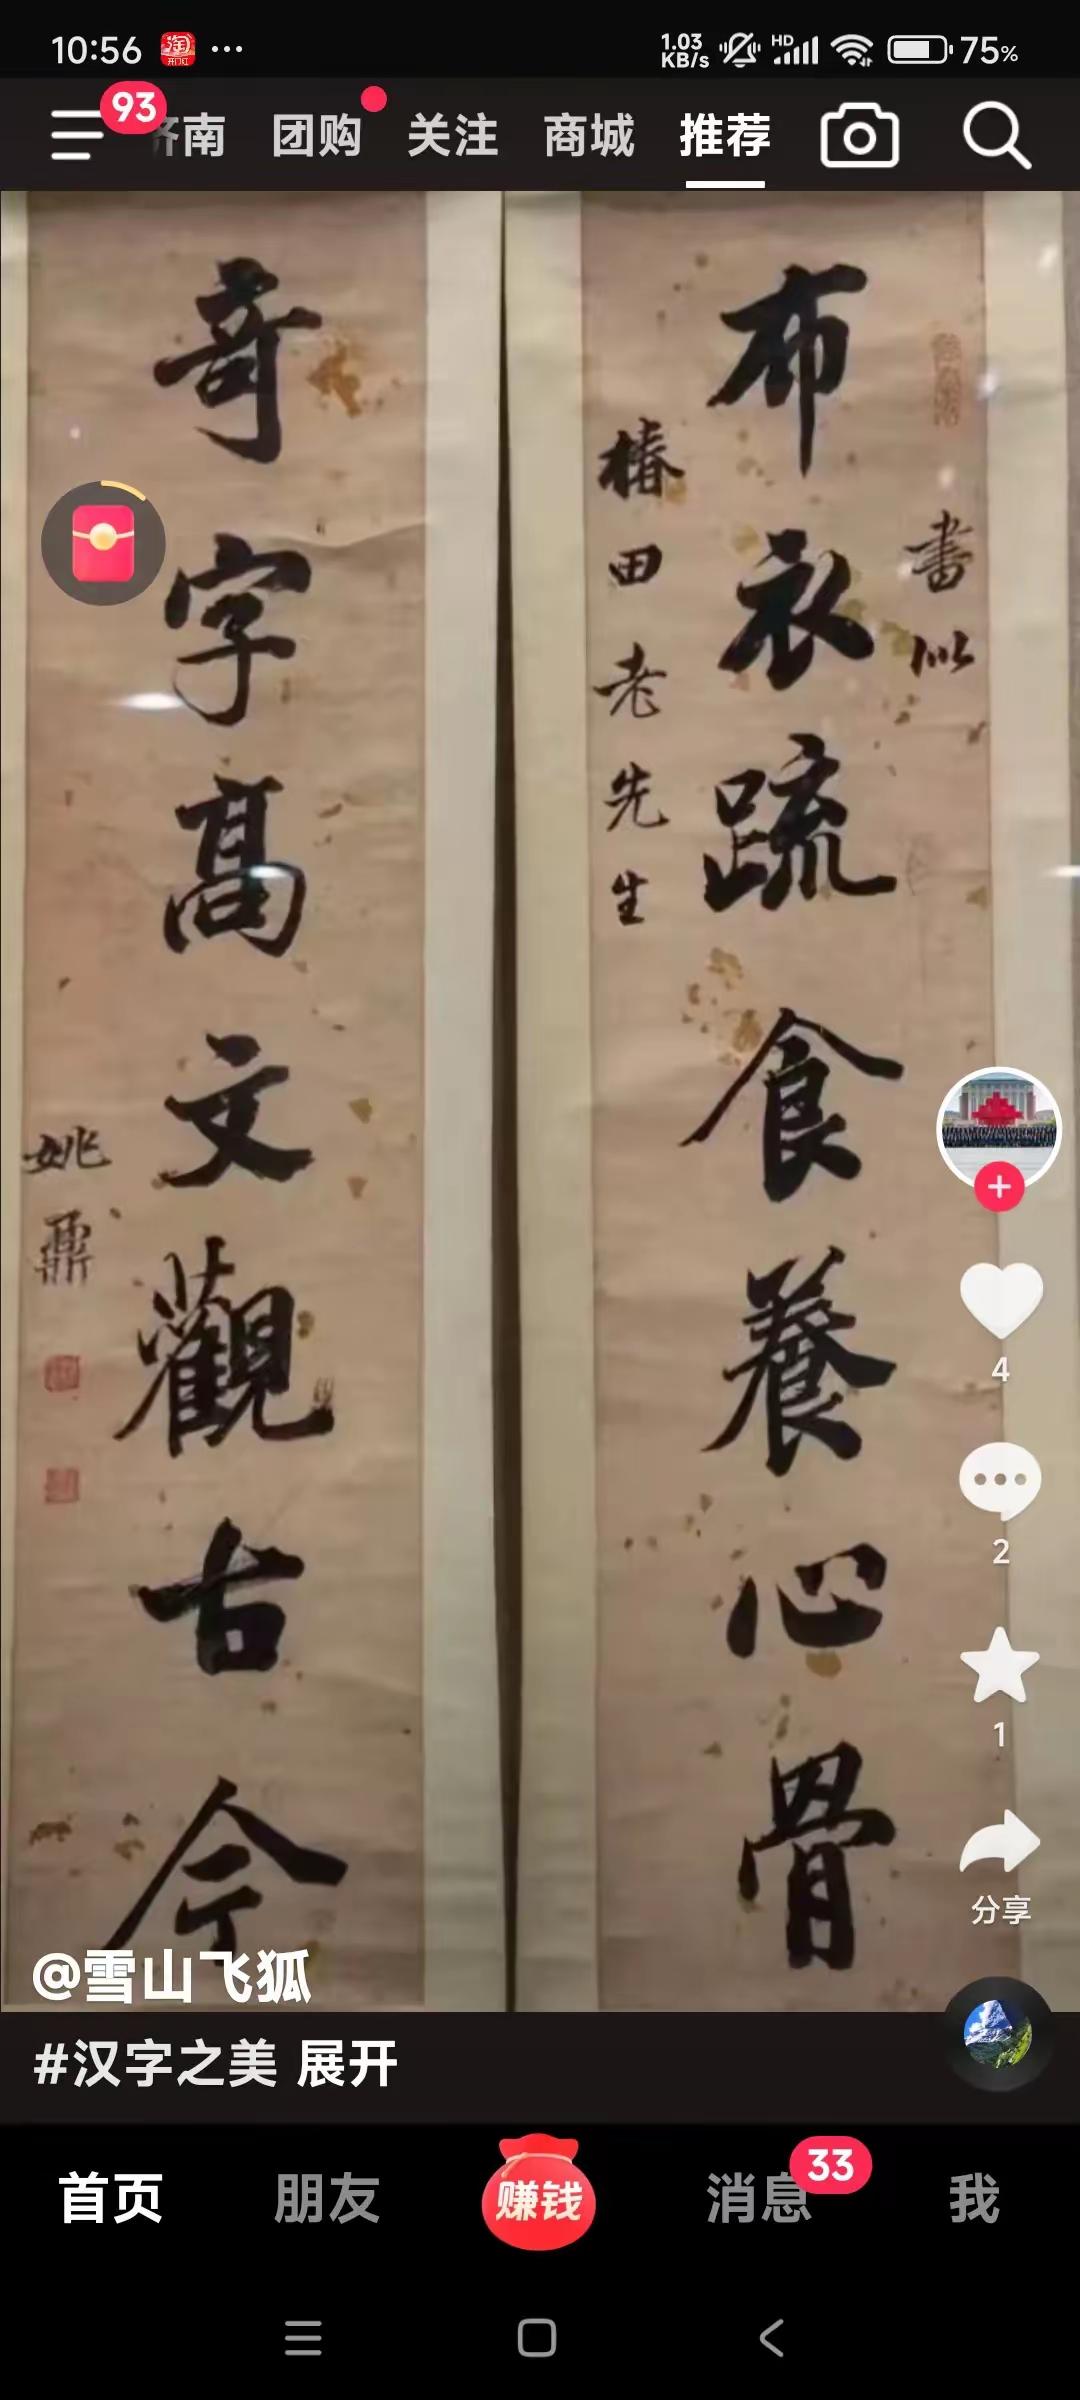 10:56
淘
开门红
...
1.03
KB/s
HD
75%
93
济南
团购
关注
商城
推荐
布衣疏食養心骨
書似
椿田老先生
奇字高文觀古今
姚鼐
4
2
1
分享
@雪山飞狐
#汉字之美 展开
首页
朋友
赚钱
消息
33
我